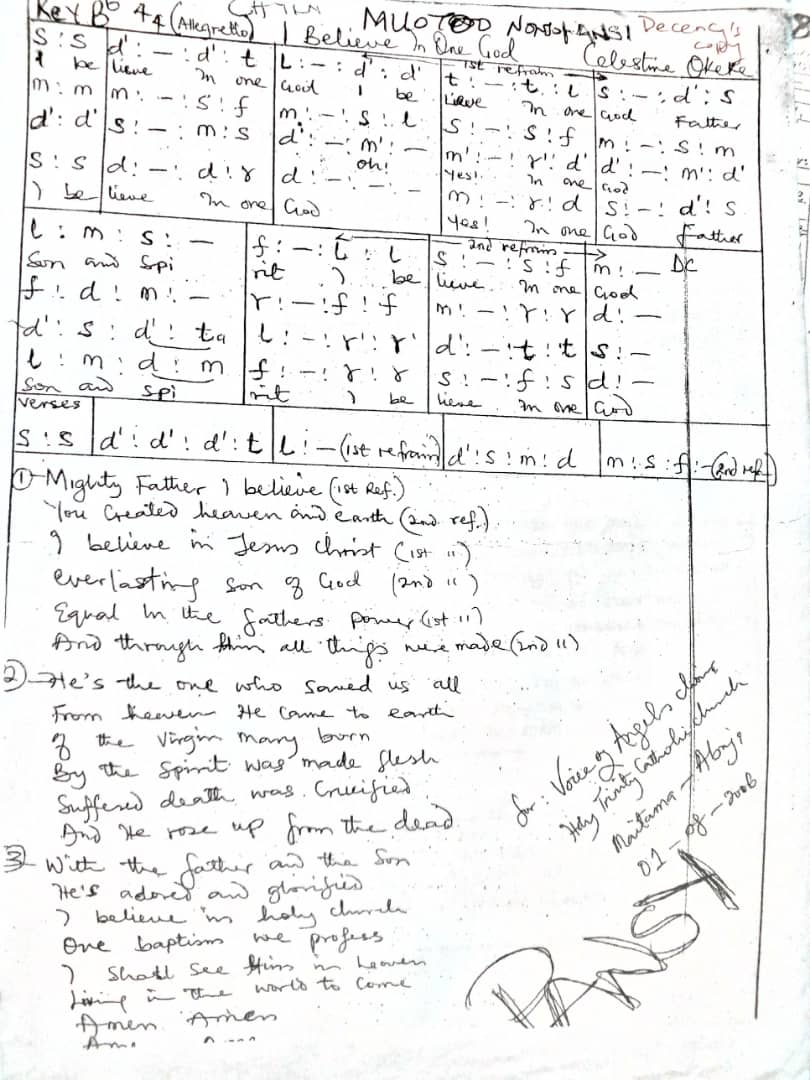 Key Bb 4/4 (Allegretto)
MUOTOO NONSOFANSI Decency's copy
I Believe In One God Celestine Okeke
s : s | d' : – : d' : t | l : – : d' : d' | t : – : t : l | s : – : d' : s
1st refrain
I be lieve In one God I be lieve In one God Father
m : m | m : – : s : f | m : – : s : l | s : – : s : f | m : – : s : m
d' : d' | s : – : m : s | d' : – : m' : – | m' : – : r' : d' | d' : – : m' : d'
oh! Yes! In one God
s : s | d : – : d : r | d : – : – : – | m : – : r : d | s : – : d' : s
I be lieve In one God Yes! In one God Father
l : m : s : – | f : – : l : l | s : – : s : f | m : – DC
2nd refrain
Son and Spi rit I be lieve In one God
f : d : m : – | r : – : f : f | m : – : r : r | d : –
d' : s : d' : ta | l : – : r' : r' | d' : – : t : t | s : –
l : m : d : m | f : – : r : r | s : – : f : s | d : –
Son and Spi rit I be lieve In one God
Verses
s : s | d' : d' : d' : t | l : – (1st refrain) | d' : s : m : d | m : s : f : – (2nd ref)
① Mighty Father I believe (1st Ref.)
You Created heaven and earth (2nd ref).
I believe in Jesus Christ (1st ")
everlasting Son of God (2nd ")
Equal In the fathers power (1st ")
And through Him all things were made (2nd ")
② He's the one who saved us all
From heaven He came to earth
of the Virgin Mary born
By the Spirit was made flesh
Suffered death was Crucified
And He rose up from the dead.
3 With the father and the Son
He's adored and glorified
I believe in holy church
One baptism we profess
I Shall see Him in heaven
Living in the world to come
Amen Amen
for: Voice of Angels choir
Holy Trinity Catholic church
Maitama – Abuja
01 – 08 – 2006
PANSY